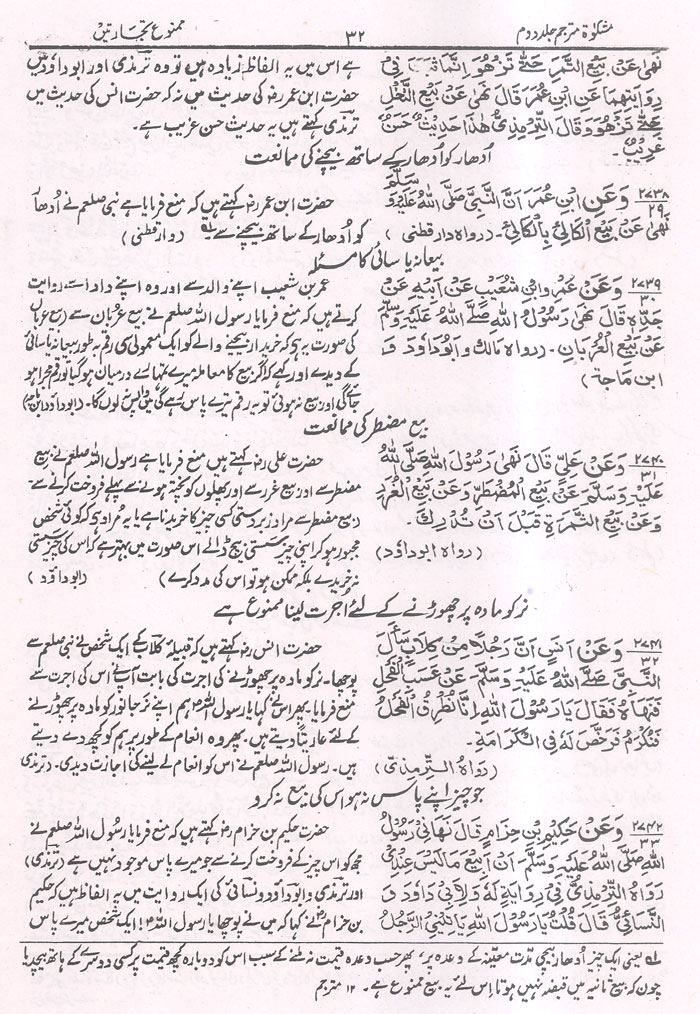 مشکوٰۃ مترجم جلد دوم
۳۲
ممنوع تجارتیں
نَھٰی عَنْ بَیْعِ التَّمَرِ حَتّٰی تَزْھُوَ اِنَّمَا ثَبَتَ فِیْ
رِوَایَتِھِمَا عَنِ ابْنِ عُمَرَ قَالَ نَھٰی عَنْ بَیْعِ النَّخْلِ
حَتّٰی تَزْھُوَ وَقَالَ التِّرْمِذِیُّ ھٰذَا حَدِیْثٌ حَسَنٌ
غَرِیْبٌ۔
ہے اس میں یہ الفاظ زیادہ ہیں تو وہ ترمذی اور ابوداؤد میں
حضرت ابن عمر رض کی حدیث میں نہ کہ حضرت انس کی حدیث میں
ترمذی کہتے ہیں یہ حدیث حسن غریب ہے۔
اُدھار کو اُدھار کے ساتھ بیچنے کی ممانعت
۲۷۳۸
۲۹
وَعَنِ ابْنِ عُمَرَ اَنَّ النَّبِیَّ صَلَّی اللّٰہُ عَلَیْہِ وَسَلَّمَ
نَھٰی عَنْ بَیْعِ الْکَالِئِ بِالْکَالِئِ۔ (رواہ دارقطنی)
حضرت ابن عمر رض کہتے ہیں کہ منع فرمایا ہے نبی صلعم نے اُدھار
کو اُدھار کے ساتھ بیچنے سے لہ (دارقطنی)
بیعانہ یا سائی کا مسئلہ
۲۷۳۹
۳۰
وَعَنْ عَمْرِو بْنِ شُعَیْبٍ عَنْ اَبِیْہِ عَنْ
جَدِّہٖ قَالَ نَھٰی رَسُوْلُ اللّٰہِ صَلَّی اللّٰہُ عَلَیْہِ وَسَلَّمَ
عَنْ بَیْعِ الْعُرْبَانِ۔ (رواہ مالک و ابوداؤد و
ابن ماجۃ)
عمر بن شعیب اپنے والد سے اور وہ اپنے دادا سے روایت
کرتے ہیں کہ منع فرمایا رسول اللہ صلعم نے بیع عربان سے (بیع عربان
کی صورت یہ ہے کہ خریدار بیچنے والے کو ایک معمولی سی رقم بطور بیعانہ یا سائی
کے دیدے اور یہ کہے کہ اگر بیع کا معاملہ میرے تمہارے درمیان ہو گیا تو رقم مجرا ہو
جائے گی اور بیع نہ ہوئی تو یہ رقم تیرے پاس رہے گی میں واپس نہ لوں گا۔ (ابوداؤد ابن ماجہ)
بیع مضطر کی ممانعت
۲۷۴۰
۳۱
وَعَنْ عَلِیٍّ قَالَ نَھٰی رَسُوْلُ اللّٰہِ صَلَّی اللّٰہُ
عَلَیْہِ وَسَلَّمَ عَنْ بَیْعِ الْمُضْطَرِّ وَعَنْ بَیْعِ الْغَرَرِ
وَعَنْ بَیْعِ الثَّمَرَۃِ قَبْلَ اَنْ تُدْرِکَ۔
(رواہ ابوداؤد)
حضرت علی رض کہتے ہیں منع فرمایا ہے رسول اللہ صلعم نے بیع
مضطر سے اور بیع غرر سے اور پھلوں کو پختہ ہونے سے پہلے فروخت کرنے سے۔
(بیع مضطر سے مراد زبردستی کسی چیز کا خریدنا ہے یا یہ مراد ہی کہ کوئی شخص
مجبور ہو کر اپنی چیز سستی بیچ ڈالے اس صورت میں بہتر ہے کہ اس کی چیز سستی
نہ خریدے بلکہ ممکن ہو تو اس کی مدد کرے) (ابوداؤد)
نر کو مادہ پر چھوڑنے کے لئے اُجرت لینا ممنوع ہے
۲۷۴۱
۳۲
وَعَنْ اَنَسٍ اَنَّ رَجُلًا مِنْ کِلَابٍ سَاَلَ
النَّبِیَّ صَلَّی اللّٰہُ عَلَیْہِ وَسَلَّمَ عَنْ عَسْبِ الْفَحْلِ
فَنَھَاہُ فَقَالَ یَا رَسُوْلَ اللّٰہِ اِنَّا نُطْرِقُ الْفَحْلَ
فَنُکْرَمُ فَرَخَّصَ لَہٗ فِی الْکَرَامَۃِ۔
(رَوَاہُ التِّرْمِذِیُّ)
حضرت انس رض کہتے ہیں کہ قبیلہ کلاب کے ایک شخص نے نبی صلعم سے
پوچھا۔ نر کو مادہ پر چھوڑنے کی اجرت کی بابت آپ نے اس کی اجرت سے
منع فرمایا۔ پھر اس نے کہا یا رسول اللہ ہم اپنے نر جانور کو مادہ پر چھوڑنے
کے لئے عاریتاً دیتے ہیں۔ پھر وہ انعام کے طور پر ہم کو کچھ دے دیتے
ہیں۔ رسول اللہ صلعم نے اس کو انعام لے لینے کی اجازت دیدی۔ (ترمذی)
جو چیز اپنے پاس نہ ہو اس کی بیع نہ کرو
۲۷۴۲
۳۳
وَعَنْ حَکِیْمِ بْنِ حِزَامٍ قَالَ نَھَانِیْ رَسُوْلُ
اللّٰہِ صَلَّی اللّٰہُ عَلَیْہِ وَسَلَّمَ اَنْ اَبِیْعَ مَا لَیْسَ عِنْدِیْ
رَوَاہُ التِّرْمِذِیُّ فِیْ رِوَایَۃٍ لَہٗ وَلِاَبِیْ دَاوٗدَ وَ
النَّسَائِیِّ قَالَ قُلْتُ یَا رَسُوْلَ اللّٰہِ یَاْتِیْنِی الرَّجُلُ
حضرت حکیم بن حزام رض کہتے ہیں کہ منع فرمایا رسول اللہ صلعم نے
مجھ کو اس چیز کے فروخت کرنے سے جو میرے پاس موجود نہیں ہے (ترمذی)
اور ترمذی و ابوداؤد و نسائی کی ایک روایت میں یہ الفاظ ہیں کہ حکیم
بن حزام نے کہا کہ میں نے پوچھا یا رسول اللہ! ایک شخص میرے پاس
لہ یعنی ایک چیز اُدھار بیچی مدت معیّنہ کے وعدہ پر پھر حسب وعدہ قیمت نہ ملنے کے سبب اس کو دوبارہ کچھ قیمت پر کسی دوسرے کے ہاتھ بیچدیا
چوں کہ بیع ثانیہ میں قبضہ نہیں ہوتا اِس لئے یہ بیع ممنوع ہے۔ ۱۲ مترجم